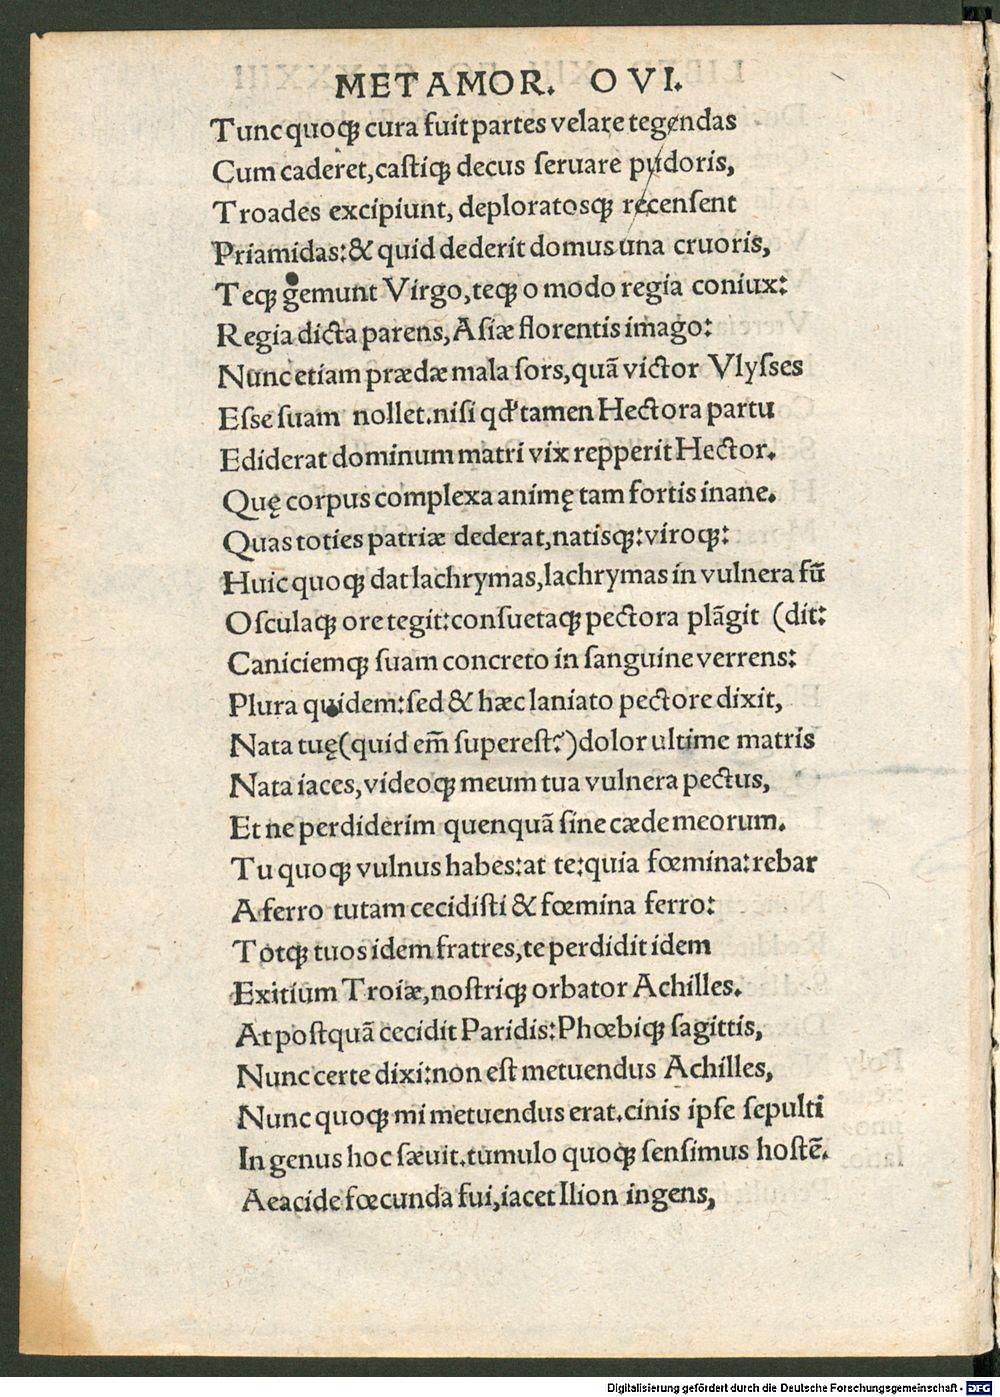 METAMOR. OVI.
Tunc quoqꝫ cura fuit partes velare tegendas
Cum caderet, castiqꝫ decus ſeruare pudoris,
Troades excipiunt, deploratosqꝫ recenſent
Priamidas: & quid dederit domus una cruoris,
Teqꝫ gemunt Virgo, teqꝫ o modo regia coniux:
Regia dicta parens, Aſiæ florentis imago:
Nunc etiam prædæ mala ſors, quā victor Vlyſses
Eſse ſuam nollet. niſi qd' tamen Hectora partu
Ediderat dominum matri vix repperit Hector.
Quę corpus complexa animę tam fortis inane.
Quas toties patriæ dederat, natisqꝫ: viroqꝫ:
Huic quoqꝫ dat lachrymas, lachrymas in vulnera fū
Oſculaqꝫ ore tegit: conſuetaqꝫ pectora plāgit (dit:
Caniciemqꝫ ſuam concreto in ſanguine verrens:
Plura quidem: ſed & hæc laniato pectore dixit,
Nata tuę (quid em̄ ſupereſt?) dolor ultime matris
Nata iaces, videoqꝫ meum tua vulnera pectus,
Et ne perdiderim quenquā ſine cæde meorum.
Tu quoqꝫ vulnus habes: at te: quia fœmina: rebar
A ferro tutam cecidiſti & fœmina ferro:
Totqꝫ tuos idem fratres, te perdidit idem
Exitium Troiæ, noſtriqꝫ orbator Achilles.
At poſtquā cecidit Paridis: Phœbiqꝫ ſagittis,
Nunc certe dixi: non eſt metuendus Achilles,
Nunc quoqꝫ mi metuendus erat. cinis ipſe ſepulti
In genus hoc ſæuit. tumulo quoqꝫ ſenſimus hoſtē.
Aeacide fœcunda fui, iacet Ilion ingens,
Digitalisierung gefördert durch die Deutsche Forschungsgemeinschaft - DFG